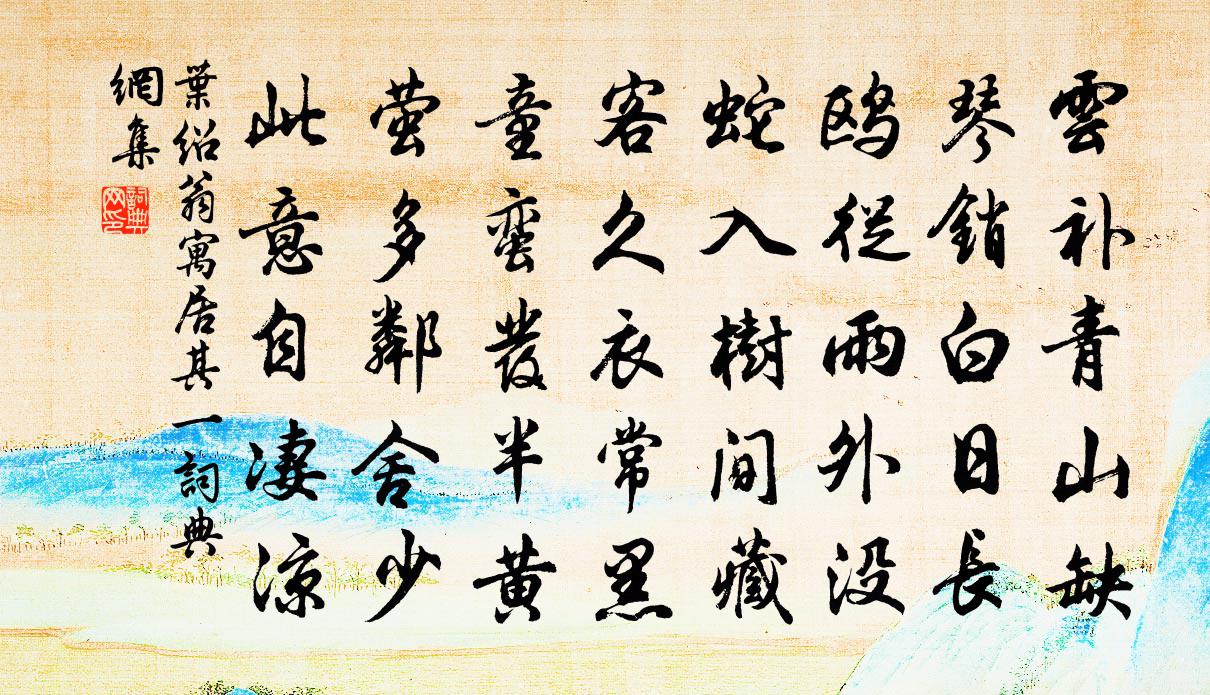 雲补青山缺
琴銷白日長
鸥從雨外没
蛇入樹間藏
客久衣常黑
童蛮髮半黄
萤多鄰舍少
此意自凄涼
葉绍翁寓居其一詞典
網集
詞典網印